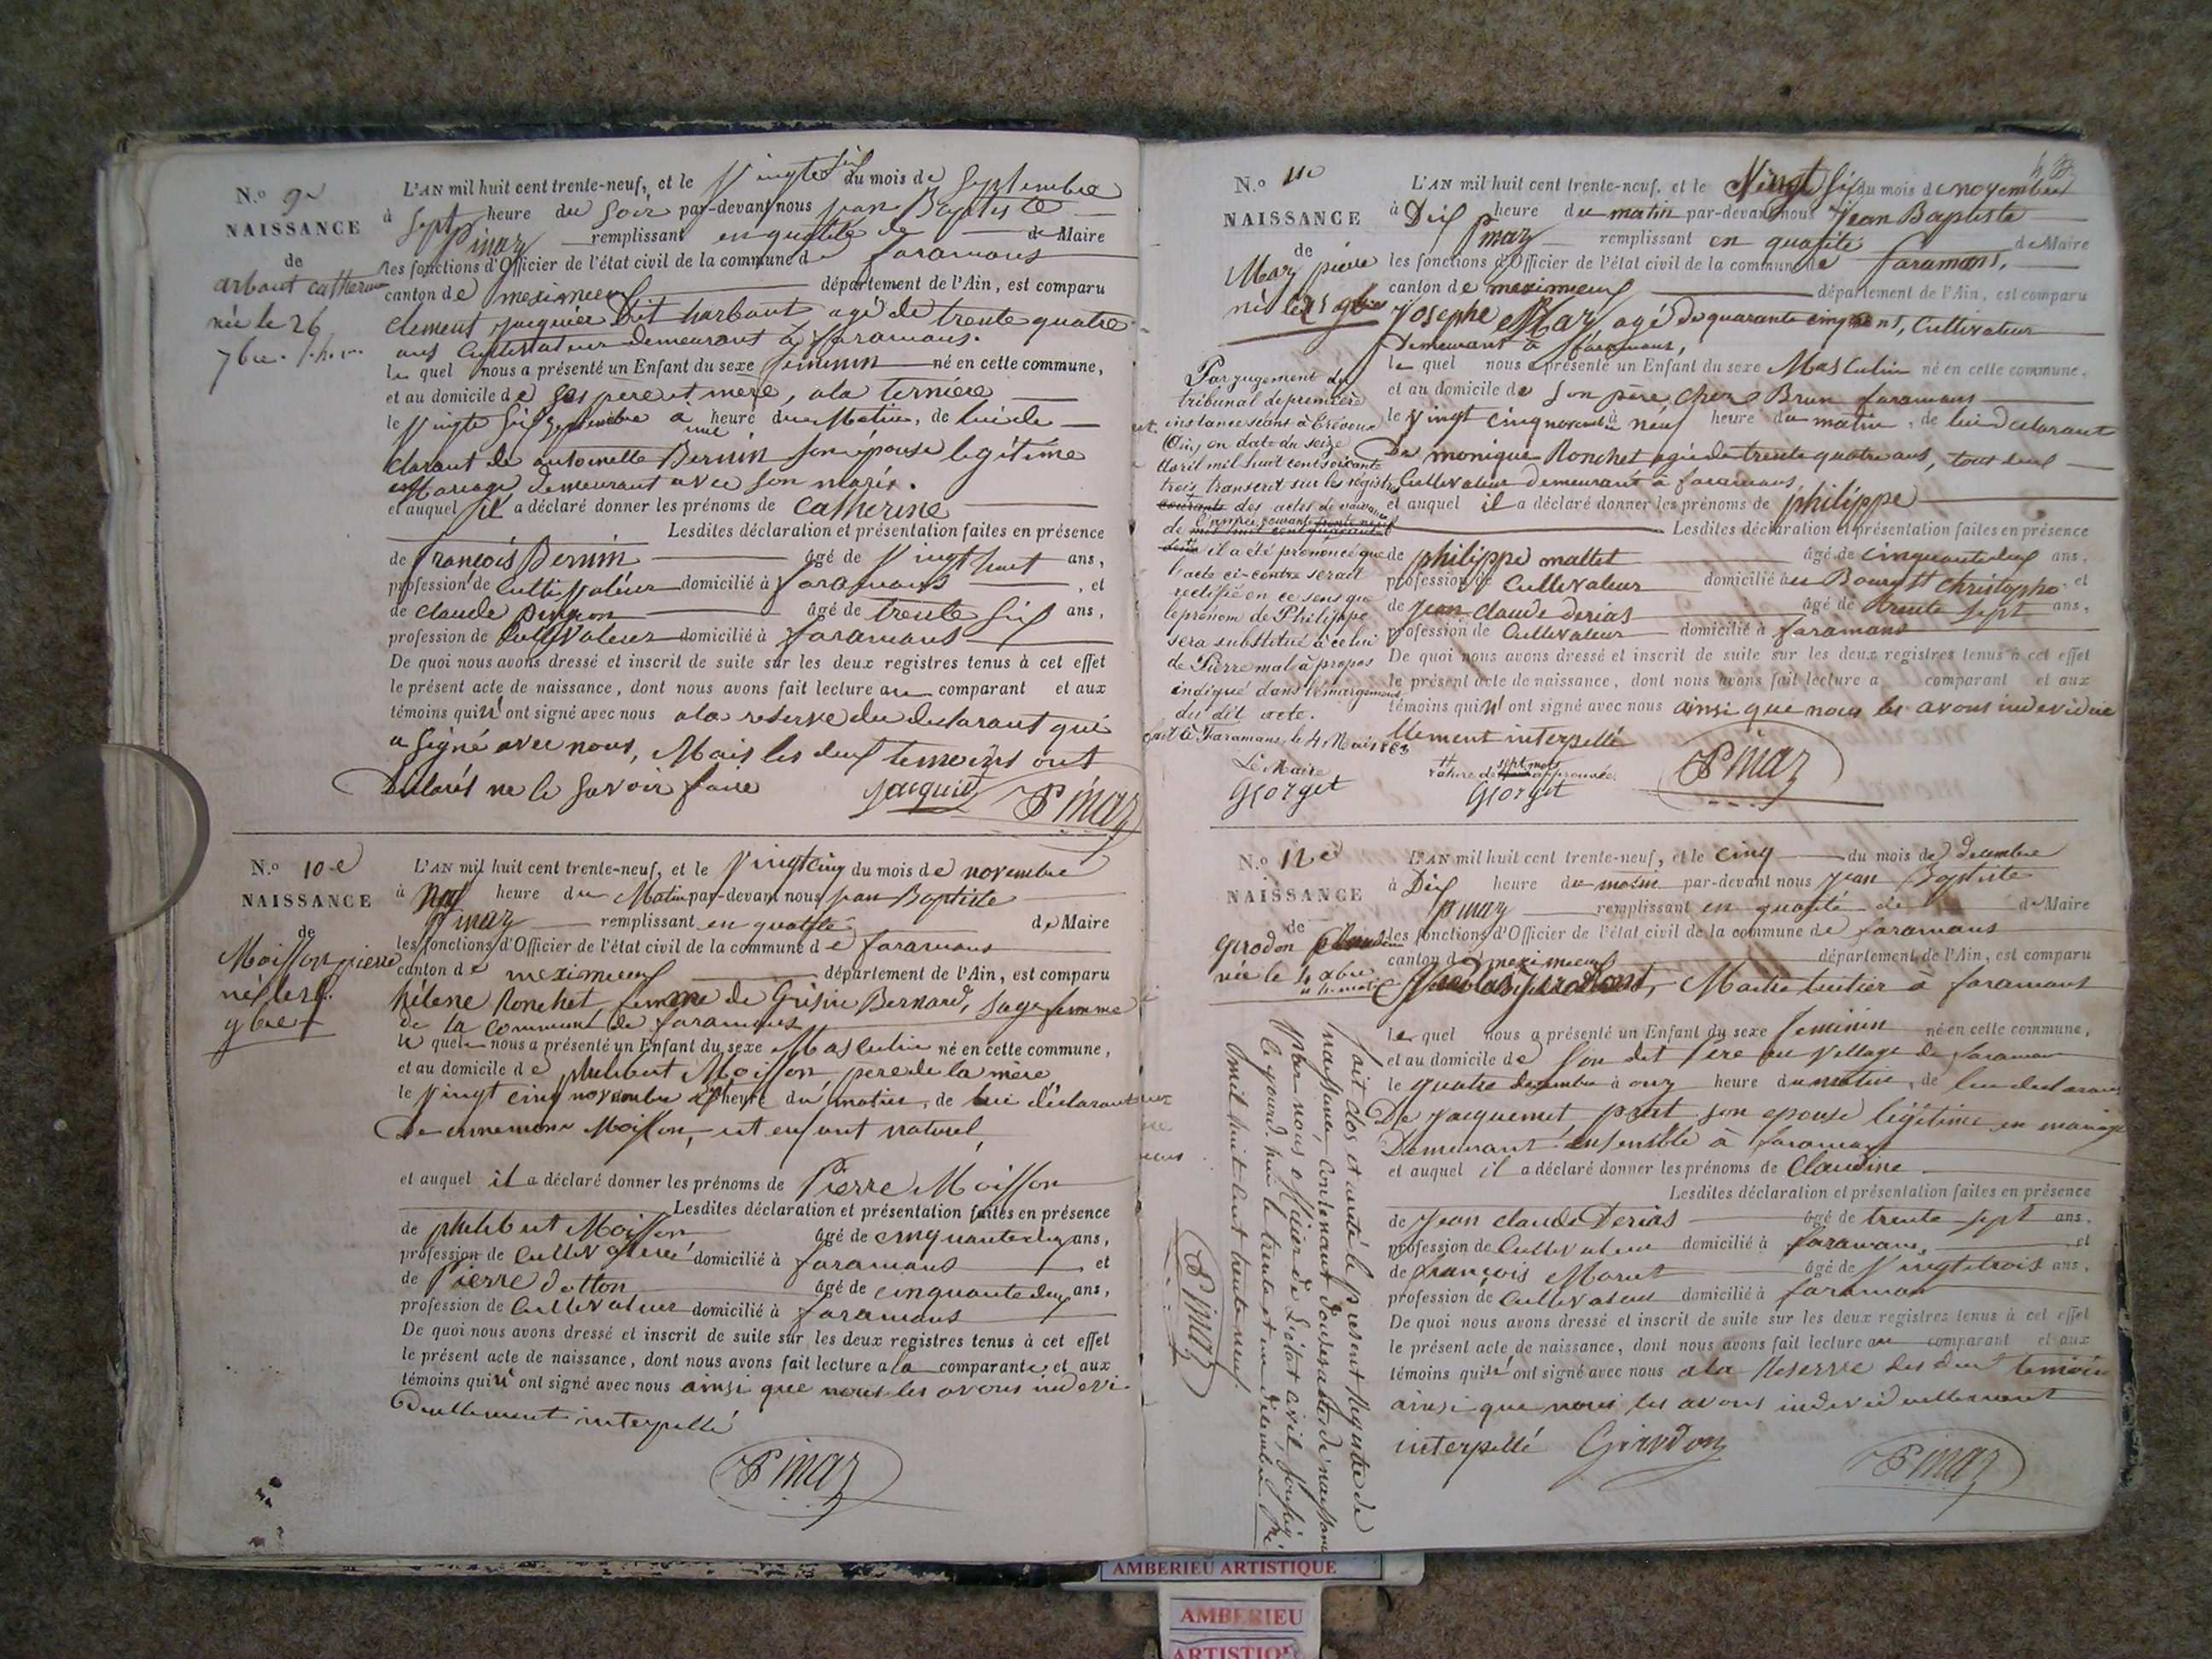 N.º 9e
NAISSANCE
de
arbant catherine
née le 26
7bre.
L'AN mil huit cent trente-neuf, et le Vingte six du mois de Septembre
à Sept heure du Soir par-devant nous jean Baptiste
Pinaz remplissant en qualité de de Maire
les fonctions d'Officier de l'état civil de la commune de faramans
canton de meximieux département de l'Ain, est comparu
Clement jacquier Dit harbant agé de trente quatre
ans Cultivateur demeurant à faramans.
le quel nous a présenté un Enfant du sexe feminin né en cette commune,
et au domicile de ses pere et mere, a la ternière
le Vingte Six Septembre a une heure du Matin, de lui de
clarant de antoinette Bernin son épouse legitime
en Mariage demeurant avec son marié.
et auquel il a déclaré donner les prénoms de Catherine
Lesdites déclaration et présentation faites en présence
de françois Bernin âgé de Vingt huit ans,
profession de Cultivateur domicilié à faramans , et
de Claude pingon âgé de trente Six ans,
profession de Cultivateur domicilié à faramans
De quoi nous avons dressé et inscrit de suite sur les deux registres tenus à cet effet
le présent acte de naissance, dont nous avons fait lecture au comparant et aux
témoins qui n' ont signé avec nous a la reserve du declarant qui
a Signé avec nous, Mais les deux temoins ont
Déclarés ne le Savoir faire jacquier Pinaz
N.º 10e
NAISSANCE
de
Moisson pierre
né le 25
9bre
L'AN mil huit cent trente-neuf, et le Vingt cinq du mois de novembre
à heure du Matin par-devant nous jean Baptiste
Pinaz remplissant en qualité de Maire
les fonctions d'Officier de l'état civil de la commune de faramans
canton de meximieux département de l'Ain, est comparu
hélene Ronchet femme de Bernard, Sage femme
de la commune de faramans
le quel nous a présenté un Enfant du sexe Masculin né en cette commune,
et au domicile de philibert Moisson père de la mère
le Vingt cinq novembre à heure du matin, de lui déclarant
De ennemone Moisson, est enfant naturel,
et auquel il a déclaré donner les prénoms de Pierre Moisson
Lesdites déclaration et présentation faites en présence
de philibert Moisson âgé de cinquante deux ans,
profession de Cultivateur domicilié à faramans et
de Pierre dotton âgé de cinquante deux ans,
profession de Cultivateur domicilié à faramans
De quoi nous avons dressé et inscrit de suite sur les deux registres tenus à cet effet
le présent acte de naissance, dont nous avons fait lecture a la comparante et aux
témoins qui n' ont signé avec nous ainsi que nous les avons indevi
duellement interpellé
Pinaz
N.º 11e
NAISSANCE
de
Maz pierre
né le 25 9bre
L'AN mil huit cent trente-neuf, et le Vingt Six du mois de novembre
à Dix heure du matin par-devant nous Jean Baptiste
Pinaz remplissant en qualité de Maire
les fonctions d'Officier de l'état civil de la commune de faramans,
canton de meximieux département de l'Ain, est comparu
Josephe Maz, agé de quarante cinq ans, Cultivateur
Demeurant à faramans,
le quel nous a présenté un Enfant du sexe Masculin né en cette commune,
et au domicile de Son père chez Brun faramans
le Vingt cinq novembre à neuf heure du matin, de lui Declarant
De monique Ronchet agée de trente quatre ans, tous deux
Cultivateur demeurant à faramans,
et auquel il a déclaré donner les prénoms de philippe
Lesdites déclaration et présentation faites en présence
de philippe mallet âgé de cinquante deux ans,
profession de Cultivateur domicilié au Bourg St Christophe et
de jean claude derias âgé de trente Sept ans,
profession de Cultivateur domicilié à faramans
De quoi nous avons dressé et inscrit de suite sur les deux registres tenus à cet effet
le présent acte de naissance, dont nous avons fait lecture a comparant et aux
témoins qui n' ont signé avec nous ainsi que nous les avons individue
llement interpellé Pinaz
Par jugement du
tribunal de première
instance séant à Trévoux
(Ain) en date du seize
Avril mil huit cent soixante
trois transcrit sur les registres
courants des actes de naissance
de l'année courante
il a été prononcé que
l'acte ci-contre serait
rectifié en ce sens que
le prénom de Philippe
sera substitué à celui
de Pierre mal à propos
indiqué dans l'émargement
du dit acte.
fait à Faramans, le 4 Mai 1863
Le Maire
Georget
Rature de sept mots approuvée
Georget
N.º 12e
NAISSANCE
de
Girodon Claudine
née le 4 xbre
L'AN mil huit cent trente-neuf, et le Cinq du mois de Decembre
à Dix heure du matin par-devant nous jean Baptiste
Pinaz remplissant en qualité de de Maire
les fonctions d'Officier de l'état civil de la commune de faramans
canton de meximieux département de l'Ain, est comparu
Girodont, Maître tuilier à faramans
le quel nous a présenté un Enfant du sexe feminin né en cette commune,
et au domicile de Son dit Père au Village de faramans
le quatre decembre à onze heure du matin, de lui declarant
De jacquemet, son epouse légitime en mariage
Demeurant ensemble à faramans
et auquel il a déclaré donner les prénoms de Claudine
Lesdites déclaration et présentation faites en présence
de jean claude Derias âgé de trente sept ans,
profession de Cultivateur domicilié à faramans, et
de françois Moret âgé de Vingt trois ans,
profession de Cultivateur domicilié à faramans
De quoi nous avons dressé et inscrit de suite sur les deux registres tenus à cet effet
le présent acte de naissance, dont nous avons fait lecture au comparant et aux
témoins qui n' ont signé avec nous a la Reserve des deux temoin
ainsi que nous les avons individuellement
interpellé Girodon Pinaz
fait clos et arrêté le present Registre de
naissance, contenant Douze actes de naissance
par nous officier de L'état civil, soussigné
Ce jourd'hui le trente et un decembre
mil huit cent trente neuf.
Pinaz
AMBERIEU ARTISTIQUE
AMBERIEU
ARTISTIQUE